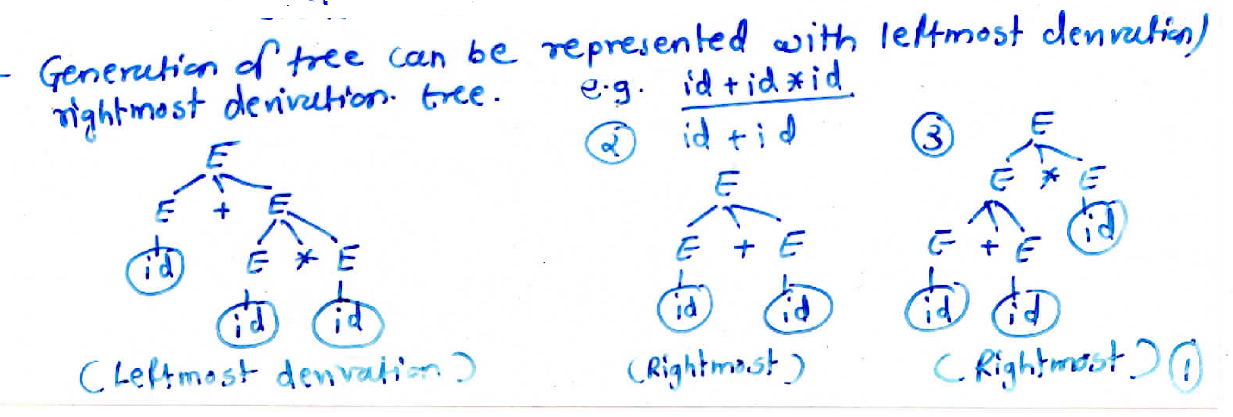 - Generation of tree can be represented with leftmost derivation/
rightmost derivation. tree. e.g. id + id * id
② id + id
③
E
E + E
id E * E
id id
(Leftmost derivation)
E
E + E
id id
(Rightmost)
E
E * E
E + E id
id id
(Rightmost) ①